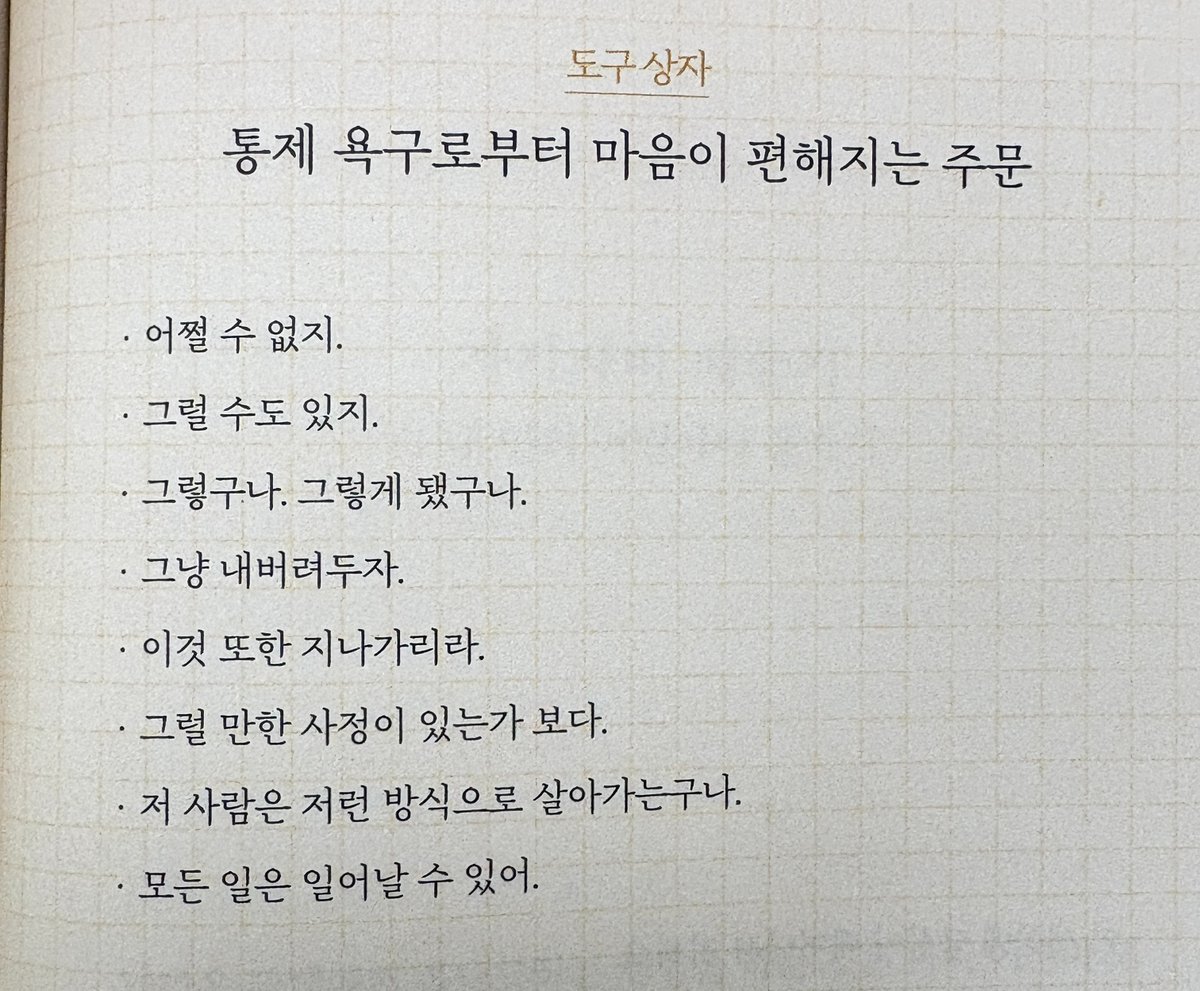 도구 상자
통제 욕구로부터 마음이 편해지는 주문
· 어쩔 수 없지.
· 그럴 수도 있지.
· 그렇구나. 그렇게 됐구나.
· 그냥 내버려두자.
· 이것 또한 지나가리라.
· 그럴 만한 사정이 있는가 보다.
· 저 사람은 저런 방식으로 살아가는구나.
· 모든 일은 일어날 수 있어.